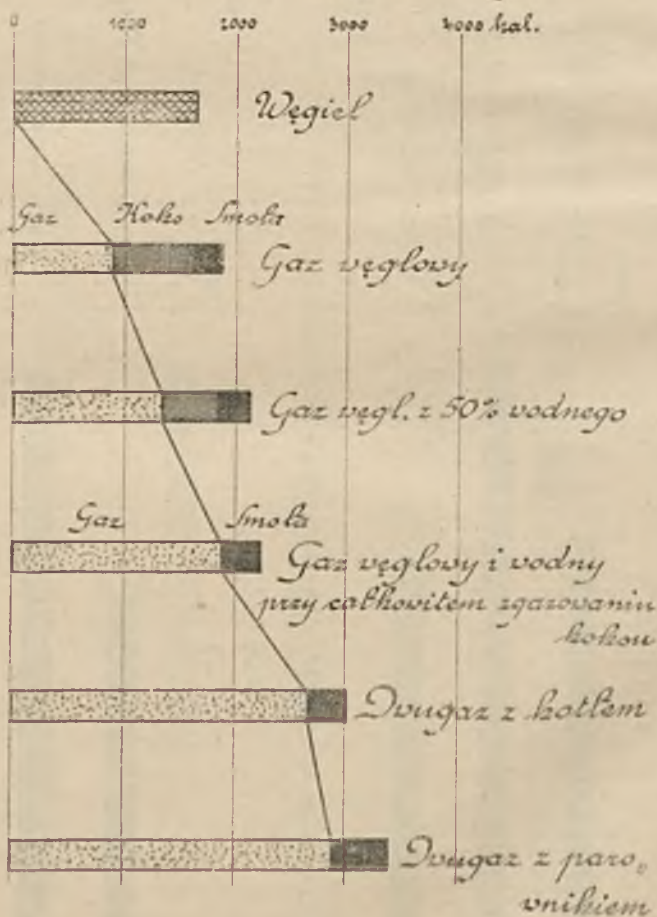 0 1000 2000 3000 4000 kal.
Węgiel
Gaz Koks Smoła
Gaz węglowy
Gaz węgl. z 50% wodnego
Gaz Smoła
Gaz węglowy i wodny
przy całkowitem zgazowaniu
koksu
Dwugaz z kotłem
Dwugaz z paro-
wnikiem